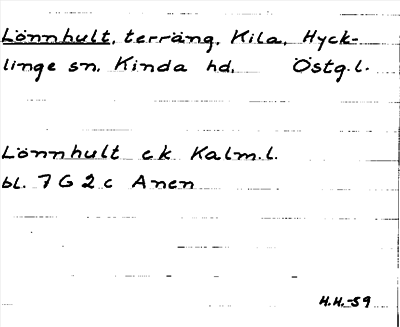 Lönnhult, terräng. Kila, Hyck-
linge sn. Kinda hd. Östg.l.
Lönnhult ek Kalm.l.
bl. 7 G 2 c Anen
H.H.-59